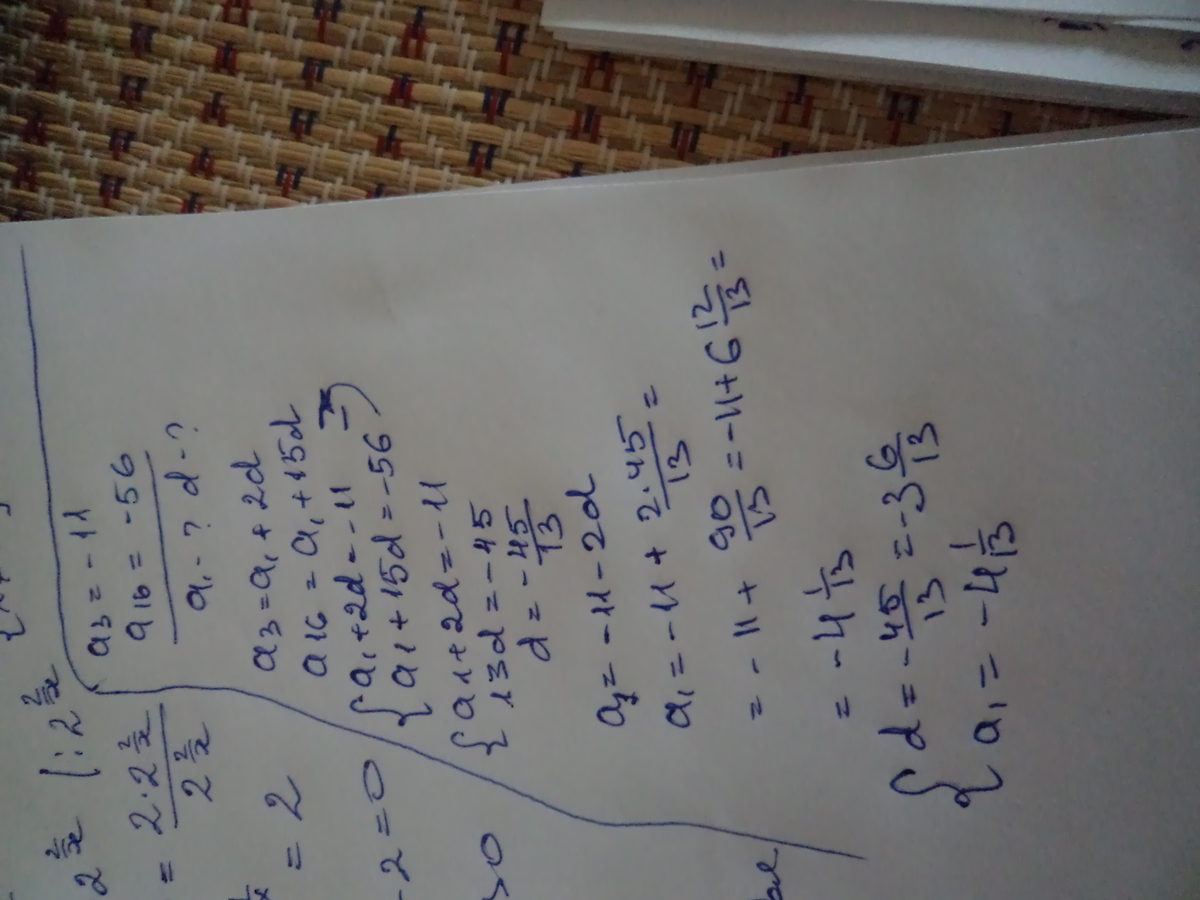 a₃ = -11
a₁₆ = -56
a₁ - ? d - ?
a₃ = a₁ + 2d
a₁₆ = a₁ + 15d
{ a₁ + 2d = -11
{ a₁ + 15d = -56
{ a₁ + 2d = -11
{ 13d = -45
d = -45/13
a₁ = -11 - 2d
a₁ = -11 + 2·45/13 =
= -11 + 90/13 = -11 + 6 12/13 =
= -4 1/13
{ d = -45/13 = -3 6/13
{ a₁ = -4 1/13
2^(2/x) | : 2^(2/x)
= 2·2^(2/x) / 2^(2/x)
= 2
- 2 = 0
> 0